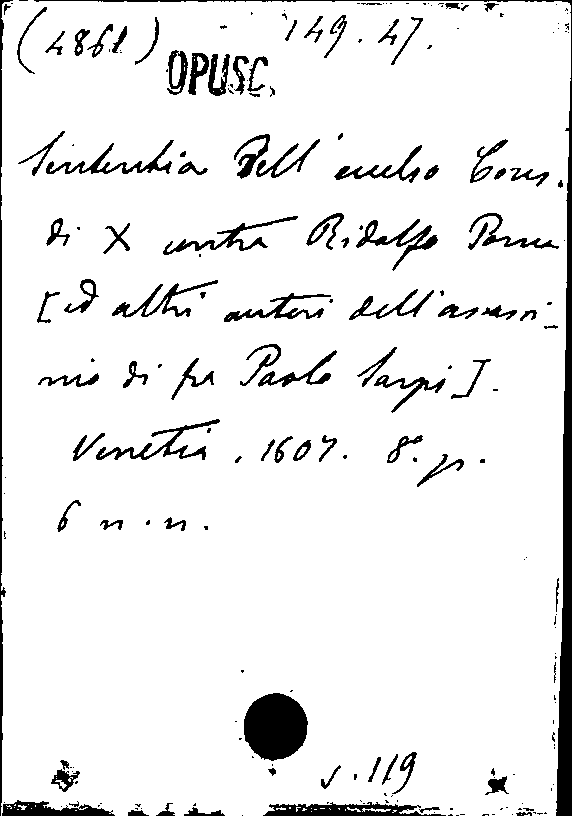 (4861) 149.47.
OPUSC.
Sententia Dell' eccelso Cons.
di X contra Ridolfo Poma
[ed altri autori dell'assassi-
nio di fra Paolo Sarpi].
Venetia, 1607. 8° p.
6 n.n.
v. 119